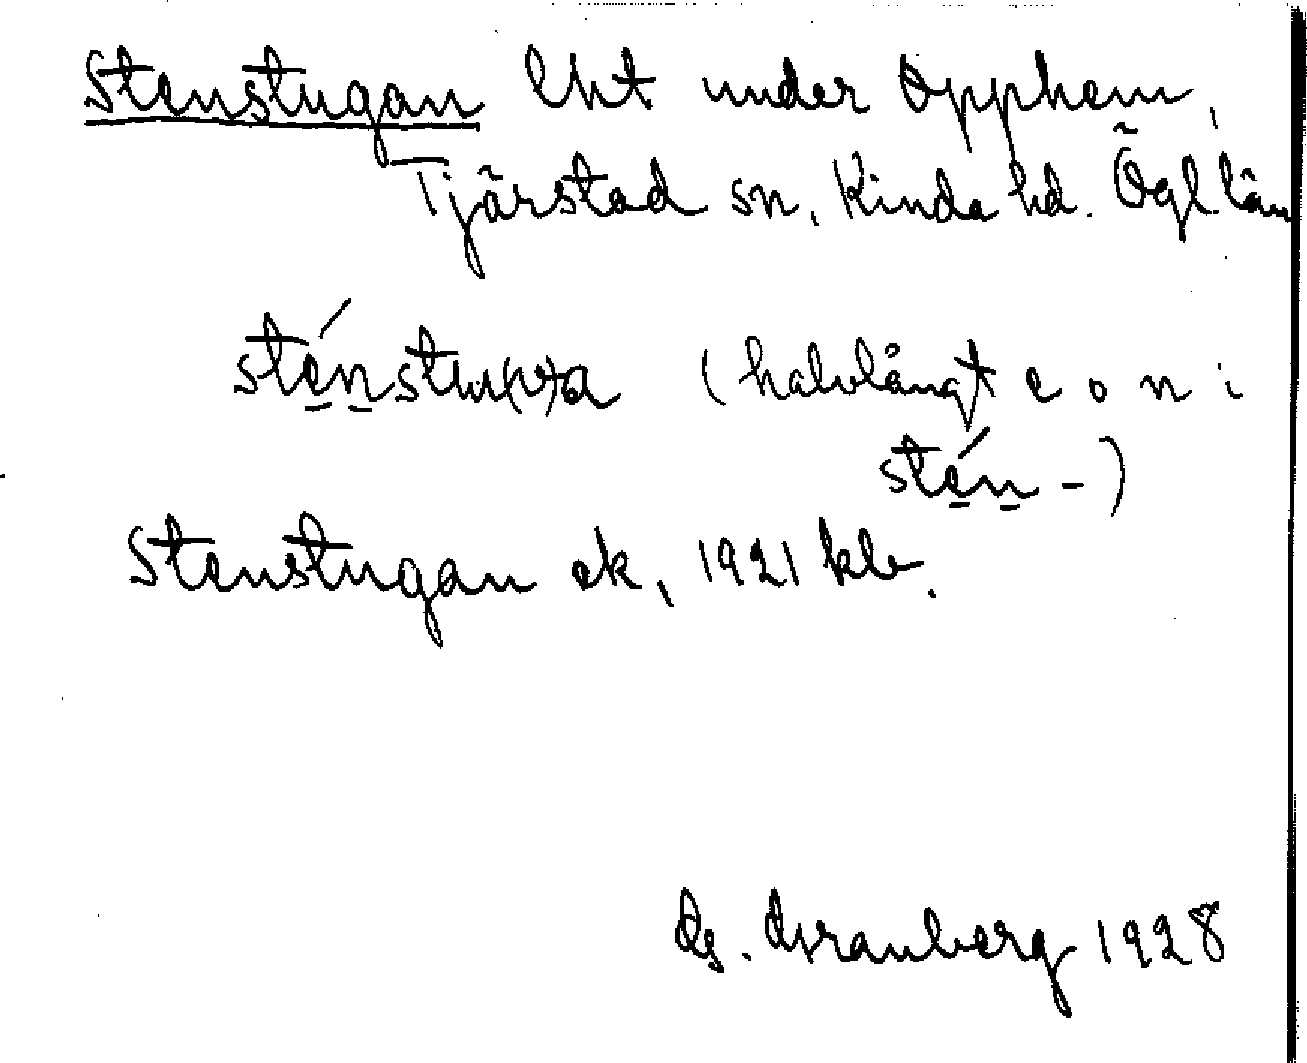 Stenstugan lht under Opphem,
Tjärstad sn, Kinda hd. Ögl. län
sténstuu(v)a (halvlångt e o n i
stén-)
Stenstugan ek, 1921 kb.
G. Granberg 1928